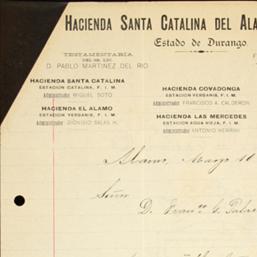 HACIENDA SANTA CATALINA DEL ALA
Estado de Durango.
TESTAMENTARÍA
DEL SR. LIC.
D. PABLO MARTINEZ DEL RIO
HACIENDA SANTA CATALINA
ESTACION CATALINA, F. I. M.
ADMINISTRADOR MIGUEL SOTO
HACIENDA EL ALAMO
ESTACION YERBANIS, F. I. M.
ADMINISTRADOR DIONISIO SALAS H.
HACIENDA COVADONGA
ESTACION YERBANIS, F. I. M.
ADMINISTRADOR FRANCISCO A. CALDERON
HACIENDA LAS MERCEDES
ESTACION AGUA VIEJA, F. I. M.
ADMINISTRADOR ANTONIO
Alamo, Marzo 11
Señor
D. Fran.co G. Pala